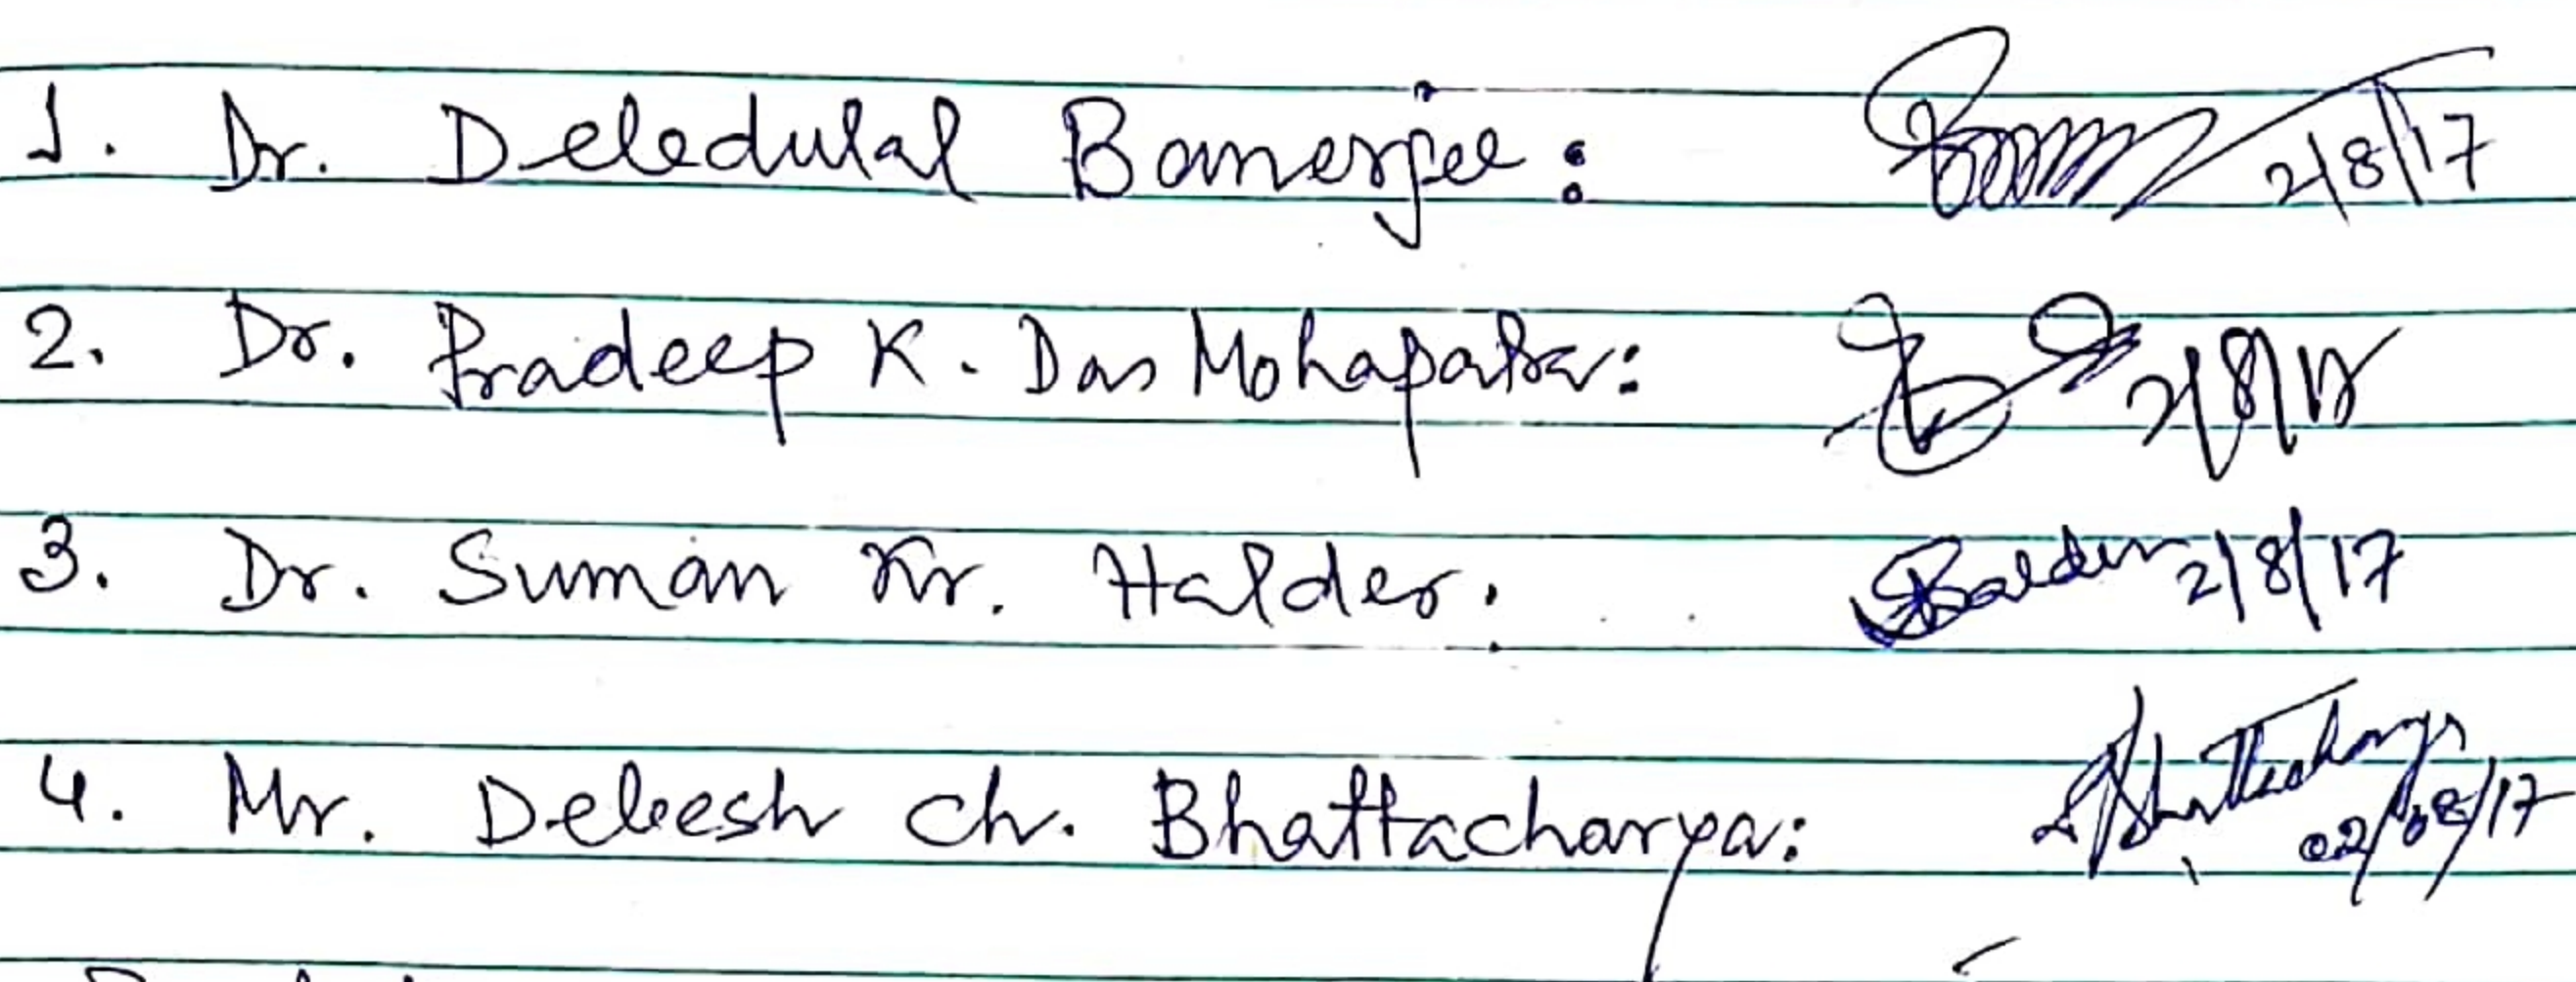 1. Dr. Debdulal Banerjee : 2/8/17
2. Dr. Pradeep K. Das Mohapatra: 2/8/17
3. Dr. Suman Kr. Halder: 2/8/17
4. Mr. Debesh Ch. Bhattacharya: 02/08/17